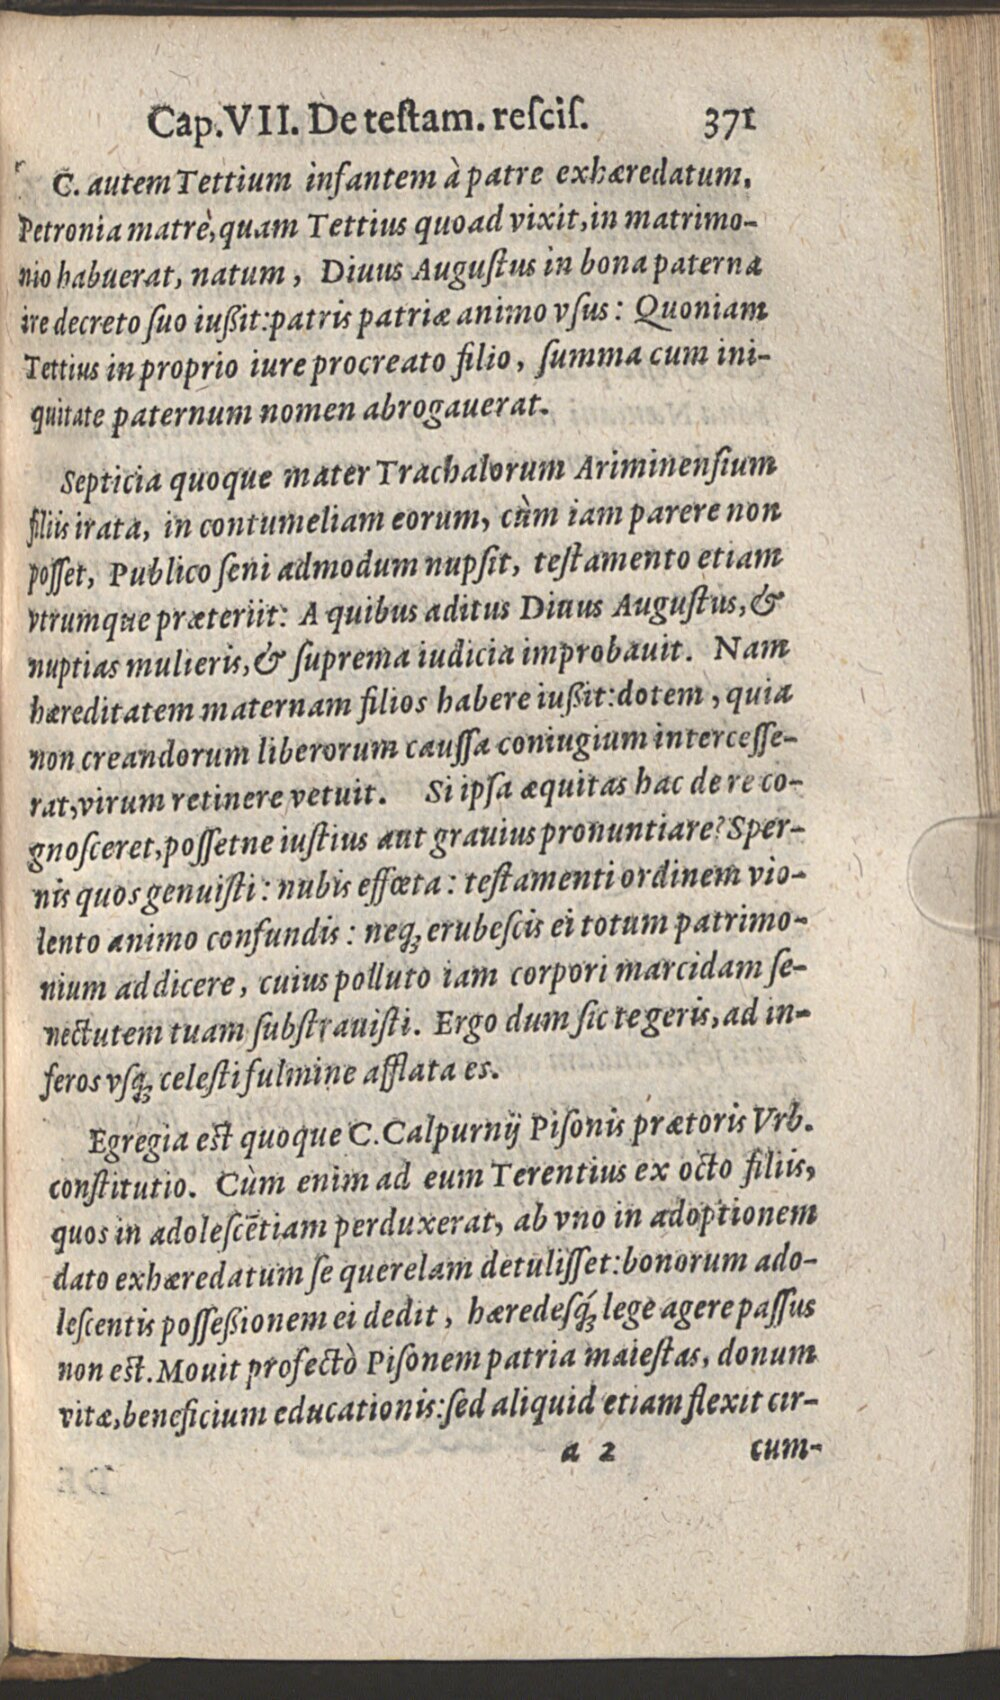 Cap. VII. De testam. rescis. 371
C. autem Tettium infantem à patre exhæredatum,
Petronia matrè, quam Tettius quoad vixit, in matrimo-
nio habuerat, natum, Diuus Augustus in bona paterna
ire decreto suo iußit: patris patriæ animo vsus: Quoniam
Tettius in proprio iure procreato filio, summa cum ini-
quitate paternum nomen abrogauerat.
Septicia quoque mater Trachalorum Ariminensium
filiis irata, in contumeliam eorum, cùm iam parere non
posset, Publico seni admodum nupsit, testamento etiam
vtrumque præteriit: A quibus aditus Diuus Augustus, &
nuptias mulieris, & suprema iudicia improbauit. Nam
hæreditatem maternam filios habere iußit: dotem, quia
non creandorum liberorum caussa coniugium intercesse-
rat, virum retinere vetuit. Si ipsa æquitas hac de re co-
gnosceret, possetne iustius aut grauius pronuntiare? Sper-
nis quos genuisti: nubis effœta: testamenti ordinem vio-
lento animo confundis: neq; erubescis ei totum patrimo-
nium addicere, cuius polluto iam corpori marcidam se-
nectutem tuam substrauisti. Ergo dum sic te geris, ad in-
feros vsq; celesti fulmine afflata es.
Egregia est quoque C. Calpurnij Pisonis prætoris Vrb.
constitutio. Cùm enim ad eum Terentius ex octo filiis,
quos in adolescẽtiam perduxerat, ab vno in adoptionem
dato exhæredatum se querelam detulisset: bonorum ado-
lescentis possessionem ei dedit, hæredesq́; lege agere passus
non est. Mouit profectò Pisonem patria maiestas, donum
vitæ, beneficium educationis: sed aliquid etiam flexit cir-
a 2 cum-